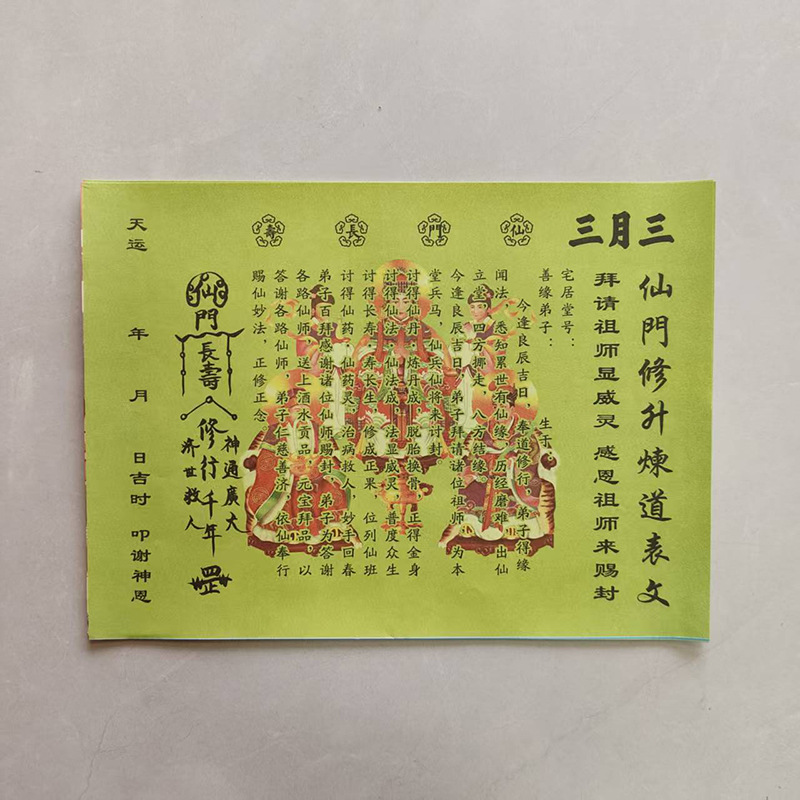 三月三
仙門修升煉道表文
拜请祖师显威灵 感恩祖师来赐封
仙門長壽
宅居堂号：
善缘弟子： 生于：
今逢良辰吉日，奉道修行，弟子得缘
闻法，悉知累世有仙缘，历经磨难，出仙
立堂，四方挪走，八方结缘。
今逢良辰吉日，弟子拜请诸位祖师，为本
堂兵马，仙兵仙将来讨封。
讨得仙丹，炼丹成，脱胎换骨，正得金身
讨得仙法，仙法成，法显威灵，普度众生
讨得长寿，寿长生，修成正果，位列仙班
讨得仙药，仙药灵，治病救人，妙手回春
弟子百拜感谢诸位仙师赐封，弟子为答谢
各路仙师，送上酒水贡品，元宝拜品，以
答谢各路仙师，弟子仁慈善济，依仙奉行
赐仙妙法，正修正念。
仙門
長壽
神通廣大
修行千年
济世救人
天运 年 月 日吉时 叩谢神恩